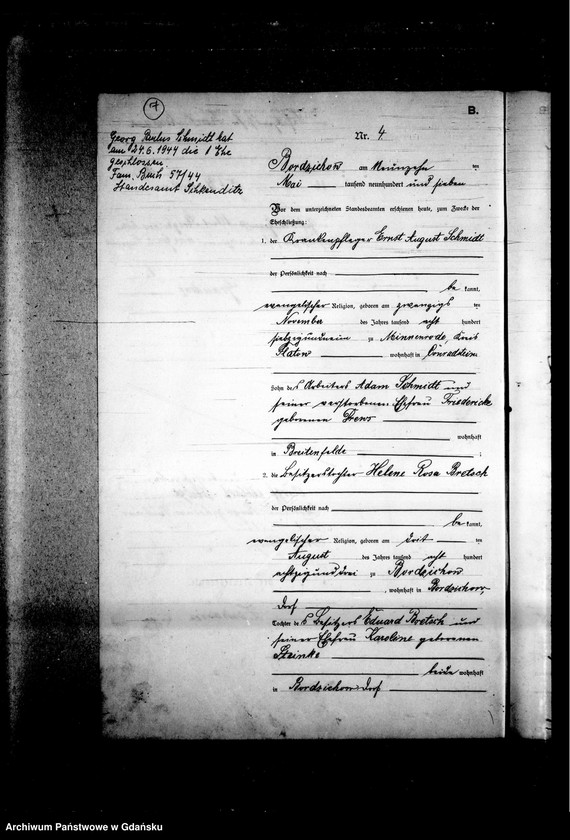 7
B.
Georg Paulus Schmidt hat
am 24.6.1944 die I Ehe
geschlossen.
Fam. Buch 57/44
Standesamt Schkeuditz
Nr. 4.
Bordzichow am Neunzehn ten
Mai tausend neunhundert und sieben
Vor dem unterzeichneten Standesbeamten erschienen heute, zum Zwecke der
Eheschließung:
1. der Krankenpfleger Ernst August Schmidt
der Persönlichkeit nach
be kannt,
evangelischer Religion, geboren am zwanzigs ten
November des Jahres tausend acht hundert
siebzigundneun zu Minnenrode, Kreis
Flatow wohnhaft in Conradstein
Sohn des Arbeiters Adam Schmidt und
seiner verstorbenen Ehefrau Friedericke
geborenen
wohnhaft
in Breitenfelde ;
2. die Besitzerstochter Helene Rosa Bretsch
der Persönlichkeit nach
be kannt,
evangelischer Religion, geboren am drit ten
August des Jahres tausend acht hundert
achtzigunddrei zu Bordzichow
, wohnhaft in Bordzichow,
Dorf
Tochter des Besitzers Eduard Bretsch und
seiner Ehefrau Karoline geborenen
Steinke
beide wohnhaft
in Bordzichow Dorf
Archiwum Państwowe w Gdańsku